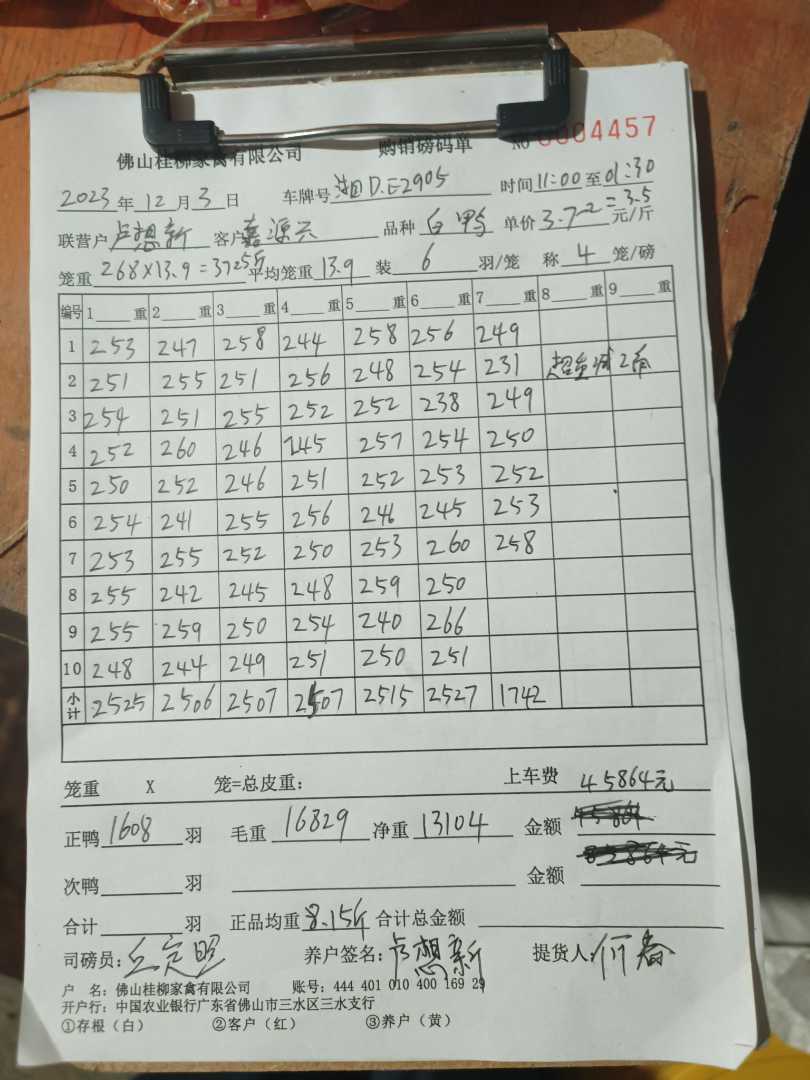 佛山桂柳家禽有限公司 购销磅码单 No 0004457
2023年12月3日 车牌号 湘D.E2905 时间11:00至01:30
联营户 卢想新 客户 嘉源云 品种 白鸭 单价 3.7-2=3.5 元/斤
笼重 268×13.9=3725斤 平均笼重 13.9 装 6 羽/笼 称 4 笼/磅
编号 1 重 2 重 3 重 4 重 5 重 6 重 7 重 8 重 9 重
1 253 247 258 244 258 256 249
2 251 255 251 256 248 254 231 超重减2角
3 254 251 255 252 252 238 249
4 252 260 246 245 257 254 250
5 250 252 246 251 252 253 252
6 254 241 255 256 246 245 253
7 253 255 252 250 253 260 258
8 255 242 245 248 259 250
9 255 259 250 254 240 266
10 248 244 249 251 250 251
小计 2525 2506 2507 2507 2515 2527 1742
笼重 X 笼=总皮重: 上车费 45864元
正鸭 1608 羽 毛重 16829 净重 13104 金额
次鸭 羽 金额
合计 羽 正品均重 8.15斤 合计总金额
司磅员: 丘定照 养户签名: 卢想新 提货人: 何春
户 名: 佛山桂柳家禽有限公司 账号: 444 401 010 400 169 29
开户行: 中国农业银行广东省佛山市三水区三水支行
①存根（白） ②客户（红） ③养户（黄）